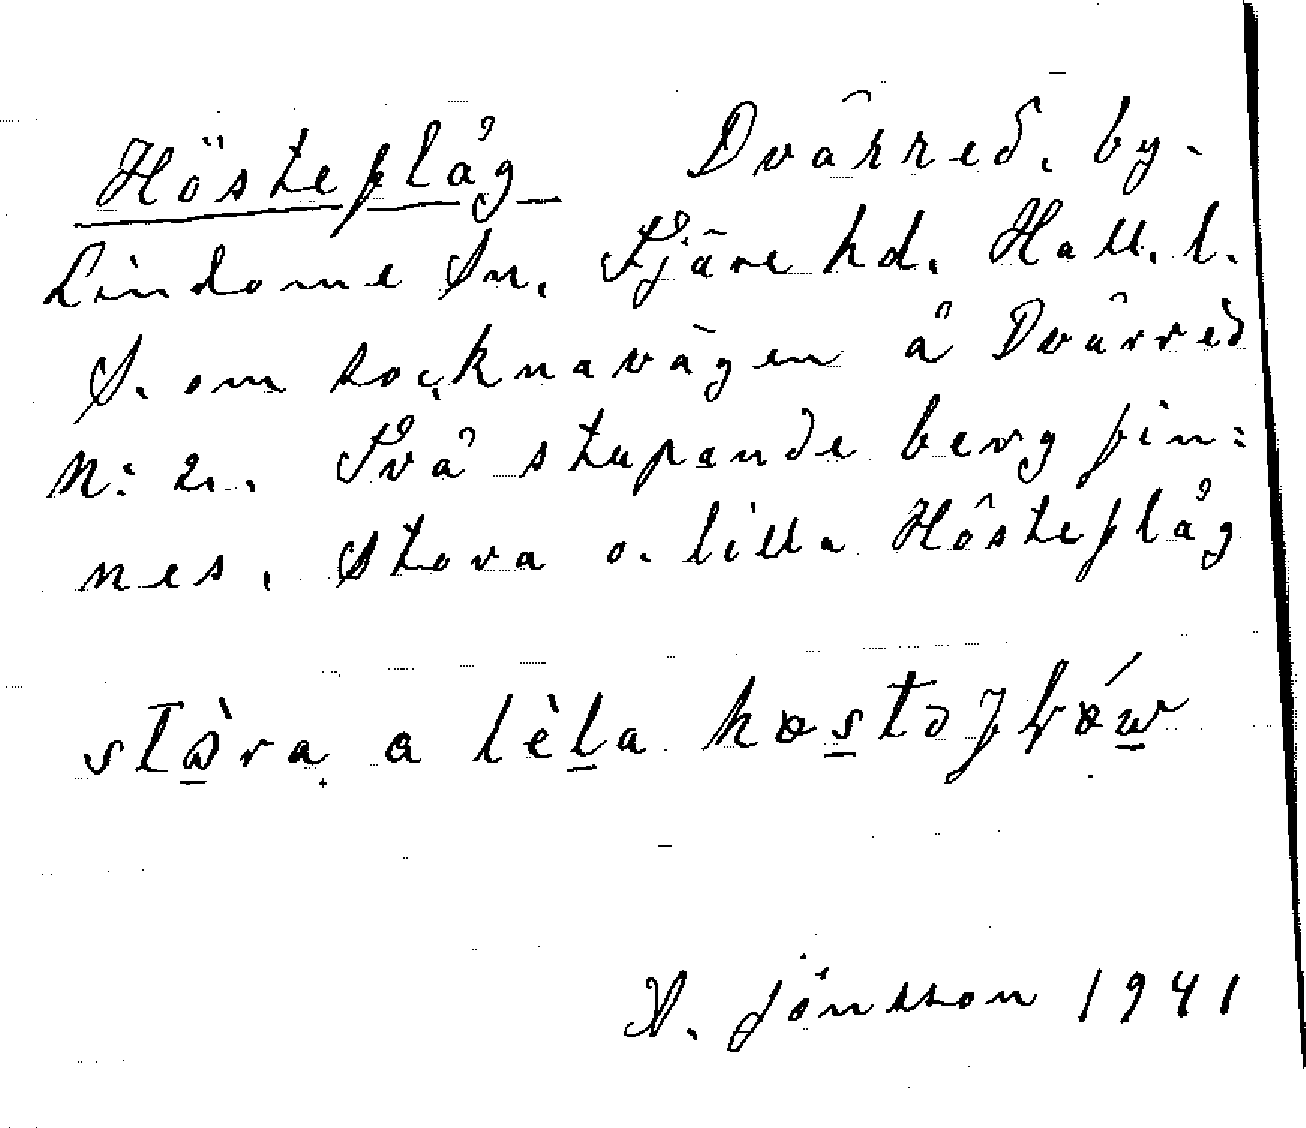 Hösteflåg Dvärred. by.
Lindome Sn. Fjäre hd. Hall. l.
S. om socknavägen å Dvärred
N: 2. Två stupande berg fin:
nes. Stora o. lilla Hösteflåg
stòra a lèla
V. Jönsson 1941